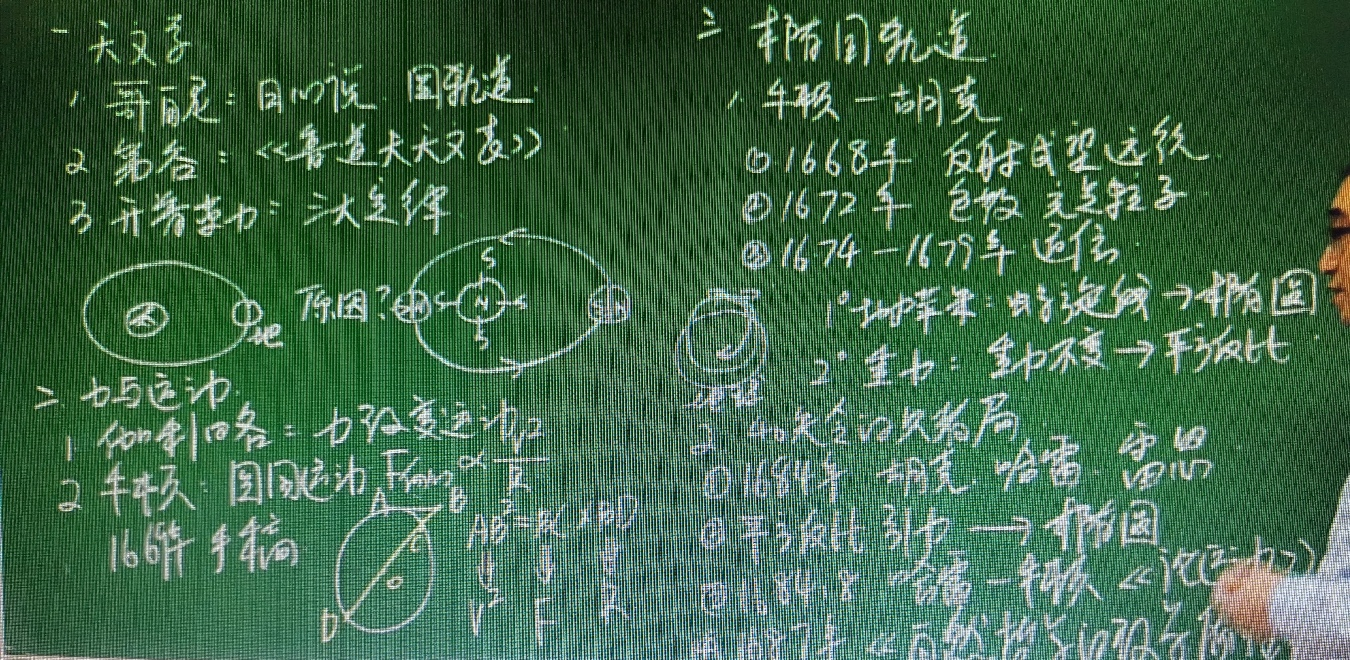 一 天文学
1. 哥白尼：日心说 圆轨道.
2 第谷：《鲁道夫天文表》
3 开普勒力：三大定律
太
地
原因？
S
S N S
S
S N
二. 力与运动.
1 伽利略：力改变运动
2 牛顿：圆周运动 F ∝ V²/R
166 年手稿
A B C D
AB² = BC × BD
V² F R
三 椭圆轨道
1. 牛顿 — 胡克
① 1668年 反射式望远镜.
② 1672年 色散 光是粒子
③ 1674 — 1679年 通信.
1° 抛苹果：螺旋线 → 椭圆
2° 重力：重力不变 → 平方反比
2.
① 1684年 胡克. 哈雷. 雷恩
② 平方反比 引力 → 椭圆
③ 1684.8 哈雷 — 牛顿 《论运动》
④ 1687年 《自然哲学的数学原